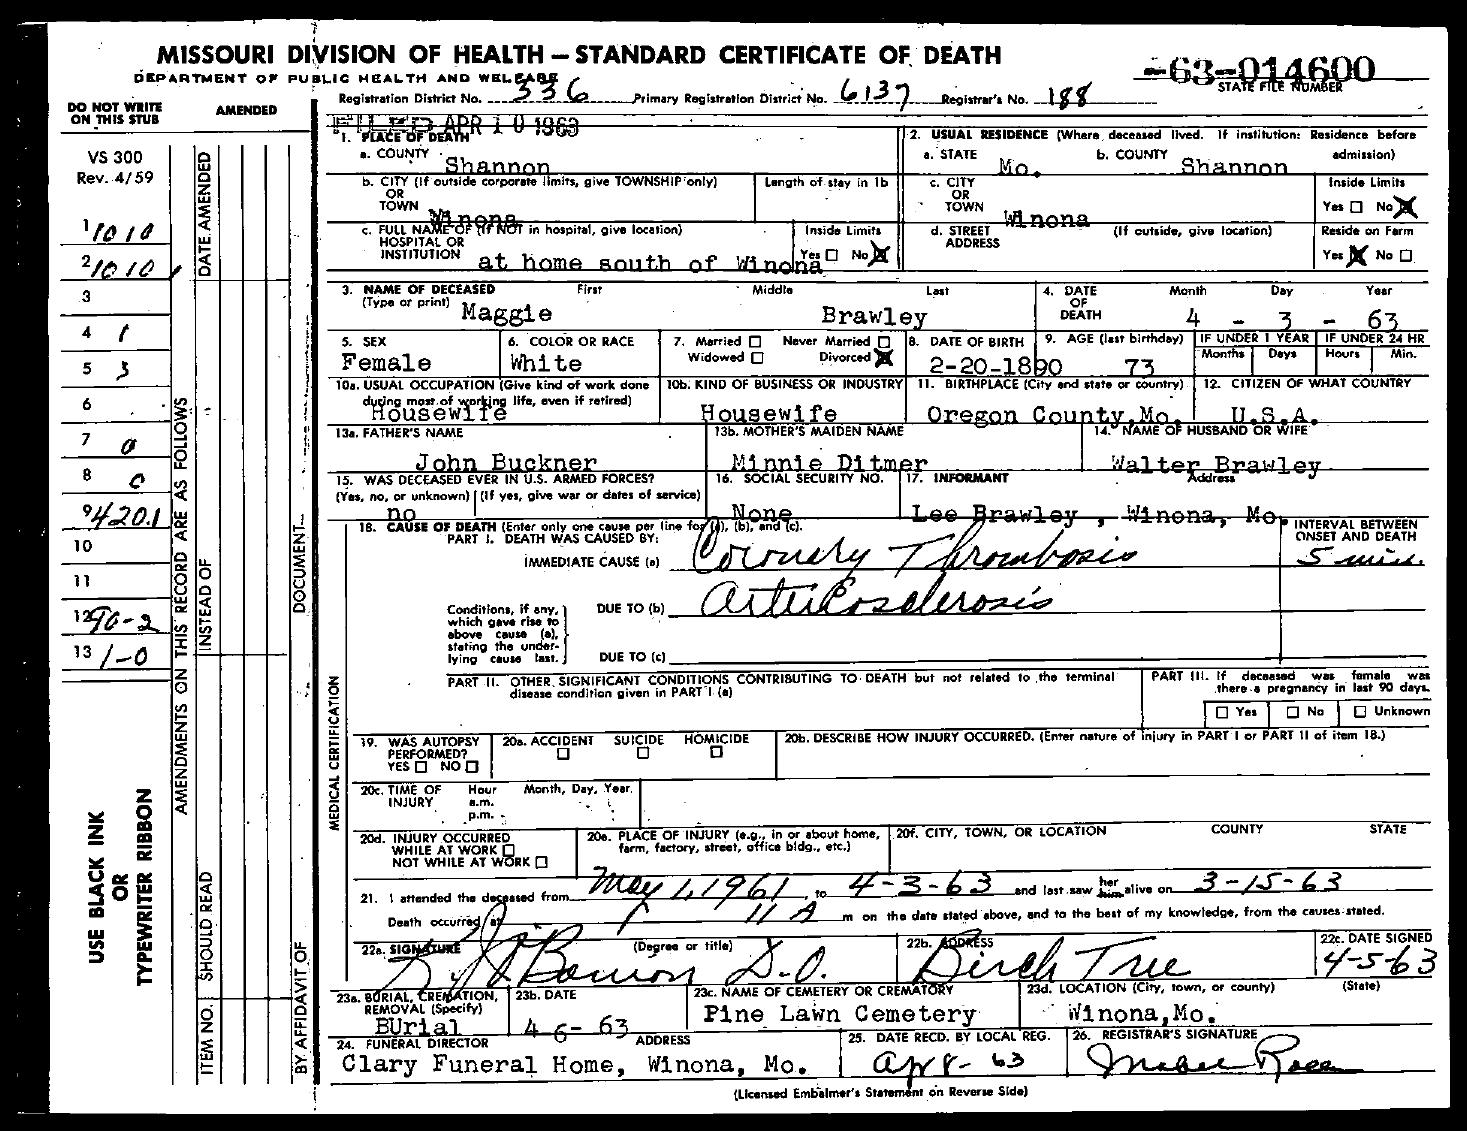 MISSOURI DIVISION OF HEALTH — STANDARD CERTIFICATE OF DEATH
DEPARTMENT OF PUBLIC HEALTH AND WELFARE
-63-014600
STATE FILE NUMBER
Registration District No. 336 Primary Registration District No. 6137 Registrar's No. 188
DO NOT WRITE
ON THIS STUB
AMENDED
VS 300
Rev. 4/59
1 1010
2 1010
3
4 1
5 3
6
7 0
8 0
9 420.1
10
11
12 90-2
13 1-0
USE BLACK INK
OR
TYPEWRITER RIBBON
AMENDMENTS ON THIS RECORD ARE AS FOLLOWS
DATE AMENDED
INSTEAD OF
ITEM NO. SHOULD READ
DOCUMENT
BY AFFIDAVIT OF
MEDICAL CERTIFICATION
FILED APR 10 1963
1. PLACE OF DEATH
a. COUNTY Shannon
b. CITY (If outside corporate limits, give TOWNSHIP only)
OR
TOWN Winona
Length of stay in 1b
c. FULL NAME OF (If NOT in hospital, give location)
HOSPITAL OR
INSTITUTION at home south of Winona
Inside Limits
Yes No X
2. USUAL RESIDENCE (Where deceased lived. If institution: Residence before
admission)
a. STATE Mo. b. COUNTY Shannon
c. CITY
OR
TOWN Winona
Inside Limits
Yes No X
d. STREET (If outside, give location)
ADDRESS
Reside on Farm
Yes X No
3. NAME OF DECEASED First Middle Last
(Type or print) Maggie Brawley
4. DATE Month Day Year
OF
DEATH 4 - 3 - 63
5. SEX
Female
6. COLOR OR RACE
White
7. Married Never Married
Widowed Divorced X
8. DATE OF BIRTH
2-20-1890
9. AGE (last birthday)
73
IF UNDER 1 YEAR
Months Days
IF UNDER 24 HR
Hours Min.
10a. USUAL OCCUPATION (Give kind of work done
during most of working life, even if retired)
Housewife
10b. KIND OF BUSINESS OR INDUSTRY
Housewife
11. BIRTHPLACE (City and state or country)
Oregon County,Mo.
12. CITIZEN OF WHAT COUNTRY
U.S.A.
13a. FATHER'S NAME
John Buckner
13b. MOTHER'S MAIDEN NAME
Minnie Ditmer
14. NAME OF HUSBAND OR WIFE
Walter Brawley
15. WAS DECEASED EVER IN U.S. ARMED FORCES?
(Yes, no, or unknown) (If yes, give war or dates of service)
no
16. SOCIAL SECURITY NO.
None
17. INFORMANT Address
Lee Brawley , Winona, Mo.
18. CAUSE OF DEATH (Enter only one cause per line for (a), (b), and (c).
PART I. DEATH WAS CAUSED BY:
INTERVAL BETWEEN
ONSET AND DEATH
IMMEDIATE CAUSE (a) Coronary Thrombosis 5 min.
Conditions, if any,
which gave rise to
above cause (a),
stating the under-
lying cause last.
DUE TO (b) Arteriosclerosis
DUE TO (c)
PART II. OTHER SIGNIFICANT CONDITIONS CONTRIBUTING TO DEATH but not related to the terminal
disease condition given in PART I (a)
PART III. If deceased was female was
there a pregnancy in last 90 days.
Yes No Unknown
19. WAS AUTOPSY
PERFORMED?
YES NO
20a. ACCIDENT SUICIDE HOMICIDE
20b. DESCRIBE HOW INJURY OCCURRED. (Enter nature of injury in PART I or PART II of item 18.)
20c. TIME OF Hour Month, Day, Year
INJURY a.m.
p.m.
20d. INJURY OCCURRED
WHILE AT WORK
NOT WHILE AT WORK
20e. PLACE OF INJURY (e.g., in or about home,
farm, factory, street, office bldg., etc.)
20f. CITY, TOWN, OR LOCATION COUNTY STATE
21. I attended the deceased from May 1, 1961 to 4-3-63 and last saw her him alive on 3-15-63
Death occurred at 11 A m on the date stated above, and to the best of my knowledge, from the causes stated.
22a. SIGNATURE (Degree or title)
D.O.
22b. ADDRESS
Birch Tree
22c. DATE SIGNED
4-5-63
23a. BURIAL, CREMATION,
REMOVAL (Specify)
BUrial
23b. DATE
4-6- 63
23c. NAME OF CEMETERY OR CREMATORY
Pine Lawn Cemetery
23d. LOCATION (City, town, or county) (State)
Winona,Mo.
24. FUNERAL DIRECTOR ADDRESS
Clary Funeral Home, Winona, Mo.
25. DATE RECD. BY LOCAL REG.
Apr 8- 63
26. REGISTRAR'S SIGNATURE
Mabel Ross
(Licensed Embalmer's Statement on Reverse Side)